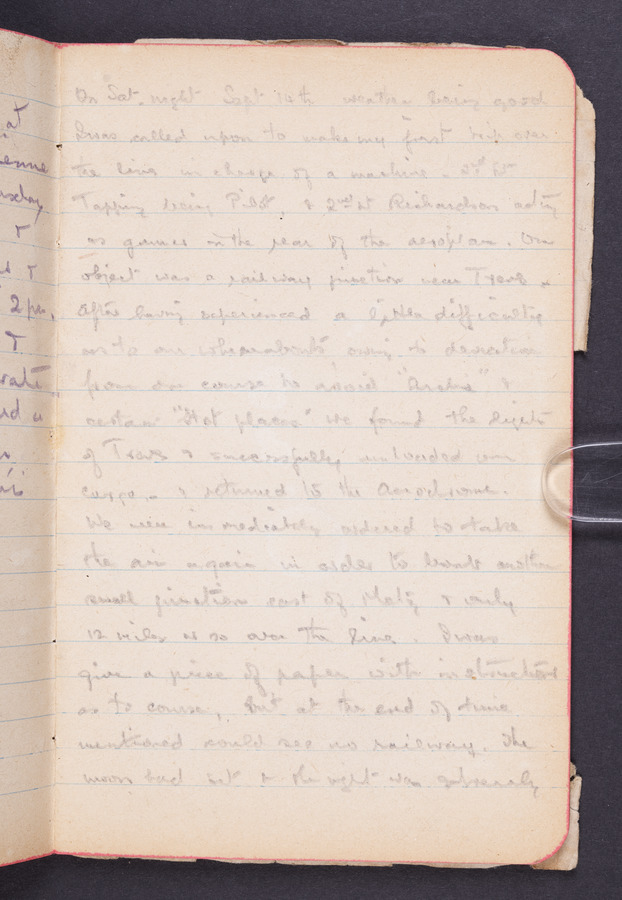 On Sat. night Sept 14th weather being good
I was called upon to make my first trip over
the lines in charge of a machine. 2nd Lt
Tapping being Pilot & 2nd Lt Richardson acting
as gunner in the rear of the aeroplane. Our
object was a railway junction near Treves.
After having experienced a little difficulty
as to our whereabouts owing to deviation
from our course to avoid "Archie" &
certain "Hot places" we found the lights
of Treves & successfully unloaded our
cargo. & returned to the Aerodrome.
We were immediately ordered to take
the air again in order to bomb another
small junction east of Metz & only
12 miles or so over the line. I was
given a piece of paper with instructions
as to course, but at the end of time
mentioned could see no railway. The
moon had set & the night was extremely